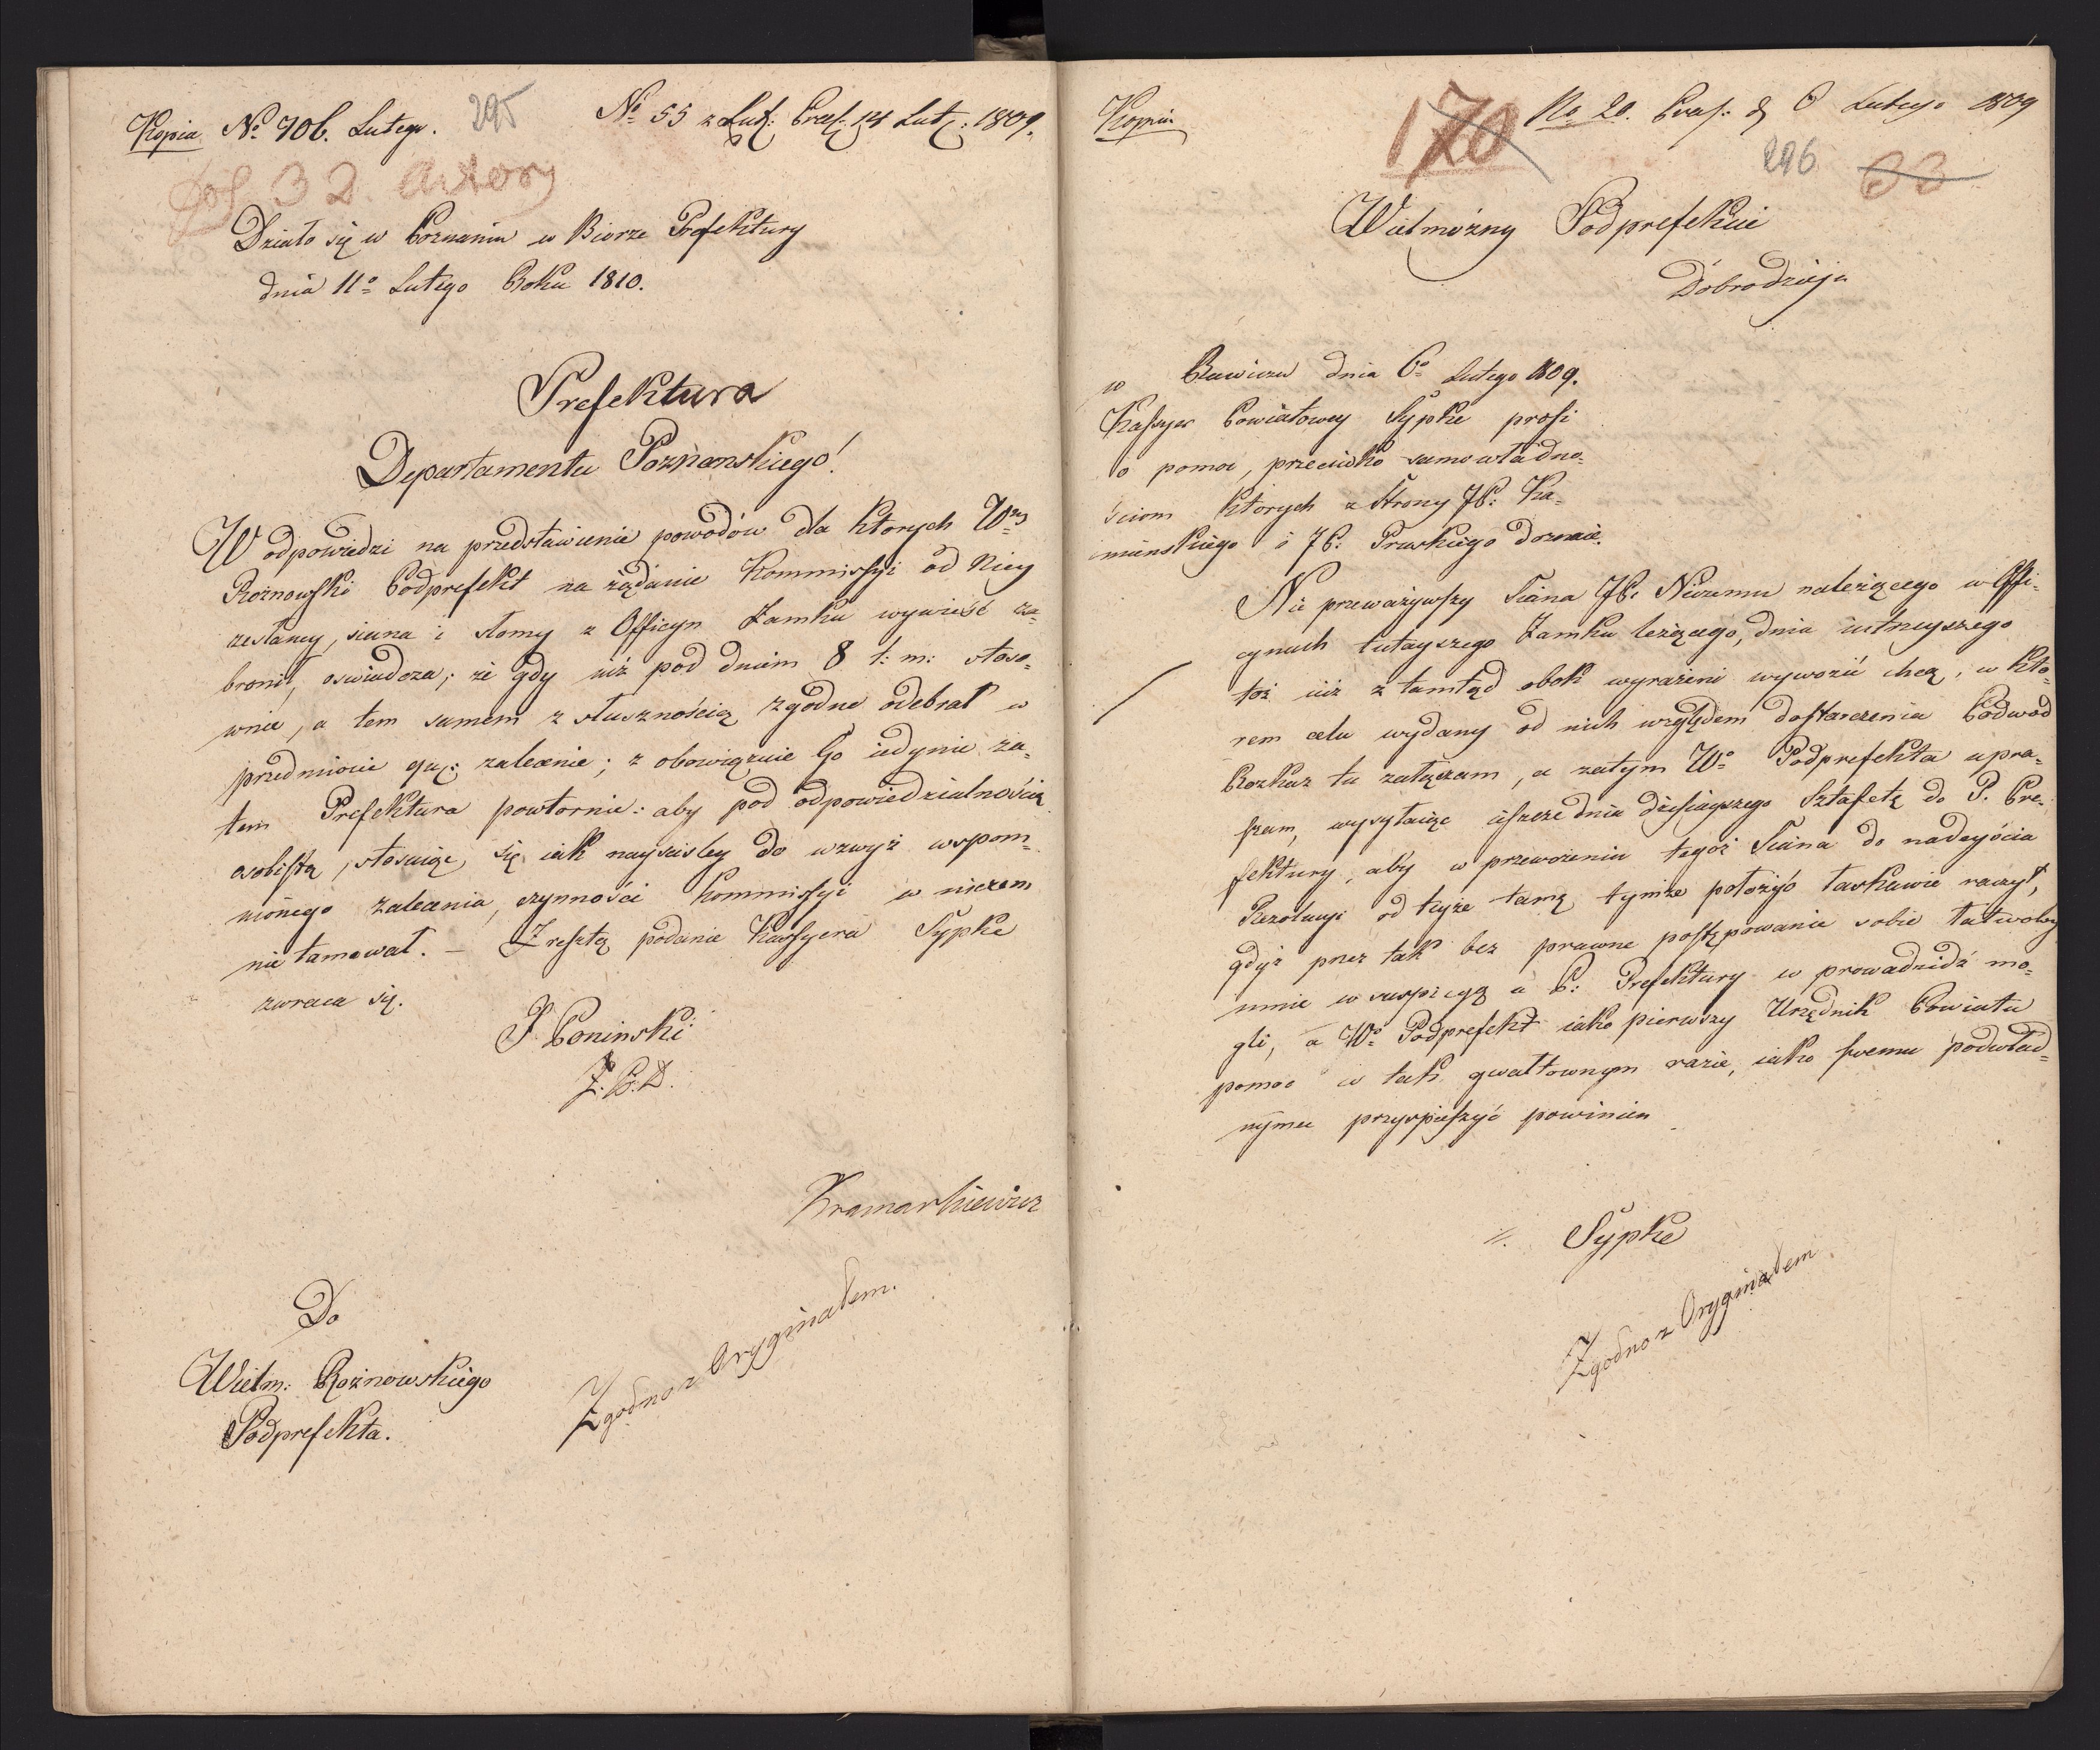 Kopia No 706. Lutego. 295 No 55 z Lut: Praes: 14 Lut: 1809.
fol 32. Actory
Działo się w Poznaniu w Biorze Prefektury
dnia 11o Lutego Roku 1810.
Prefektura
Departamentu Poznanskiego!
W odpowiedzi na przedstawienie powodów dla ktorych Wny
Rożnowski Podprefekt na żądanie Kommissyi od Niey
zesłaney, siana i słomy z Officyn Zamku wywieść za-
bronił, oswiadcza; że gdy iuż pod dniem 8 t: m: stoso-
wnie, a tem samem z słusznością zgodne odebrał w
przedmiocie qu: zalecenie; z obowiązuie Go iedynie za-
tem Prefektura powtornie: aby pod odpowiedzialnością
osobistą, stosuiąc się iak nayscisley do wzwyż wspom-
nionego zalecenia, czynności Kommissyi w niczem
nie tamował. – Zresztą podanie Kassyera Sypke
zwraca się.
J Poninski
Z. P. D.
Kramarkiewicz
Do
Wielm: Rożnowskiego
Podprefekta.
Zgodno z Oryginałem.
Kopia
170 No 20. Praes: d 6 Lutego 1809
296 63
Wielmożny Podprefekcie
Dobrodzieju
w Rawiczu dnia 6o Lutego 1809.
Kassyer Powiatowy Sypke prosi
o pomoc, przeciwko samowładno-
ściom ktorych z Strony JP: Ka-
mienskiego i JP: Pruskiego doznaie.
Nie przeważywszy Siana JP: Niczemu należącego w Offi-
cynach tutayszego Zamku leżącego, dnia iutrzeyszego
toż iuż z tamtąd obok wyrażeni wywozić chcą, w kto-
rem celu wydany od nich względem dostarczenia Podwod
Rozkaz tu załączam, a zatym Wo Podprefekta upra-
szam, wysyłaiąc ieszcze dnia dzisieyszego Sztafetę do P. Pre-
fektury, aby w przewożeniu tegoż Siana do nadeyścia
Rezolucyi od teyże tamę tymże położyć łaskawie raczył,
gdyż przez tak bez prawne postępowanie sobie łatwoby
mnie w suspicyą u P: Prefektury w prowadzidź mo-
gli, a Wo Podprefekt iako pierwszy Urzędnik Powiatu
pomoc w tak gwałtownym razie, iako swemu podwład-
nymu przyspieszyć powinien
Sypke
Zgodno z Oryginałem